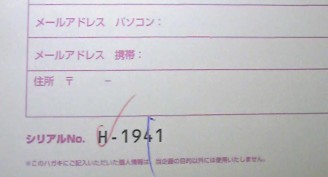 メールアドレス パソコン：
メールアドレス 携帯：
住所 〒 －
シリアルNo. H-1941
※このハガキにご記入いただいた個人情報は、当企画の目的以外には使用いたしません。